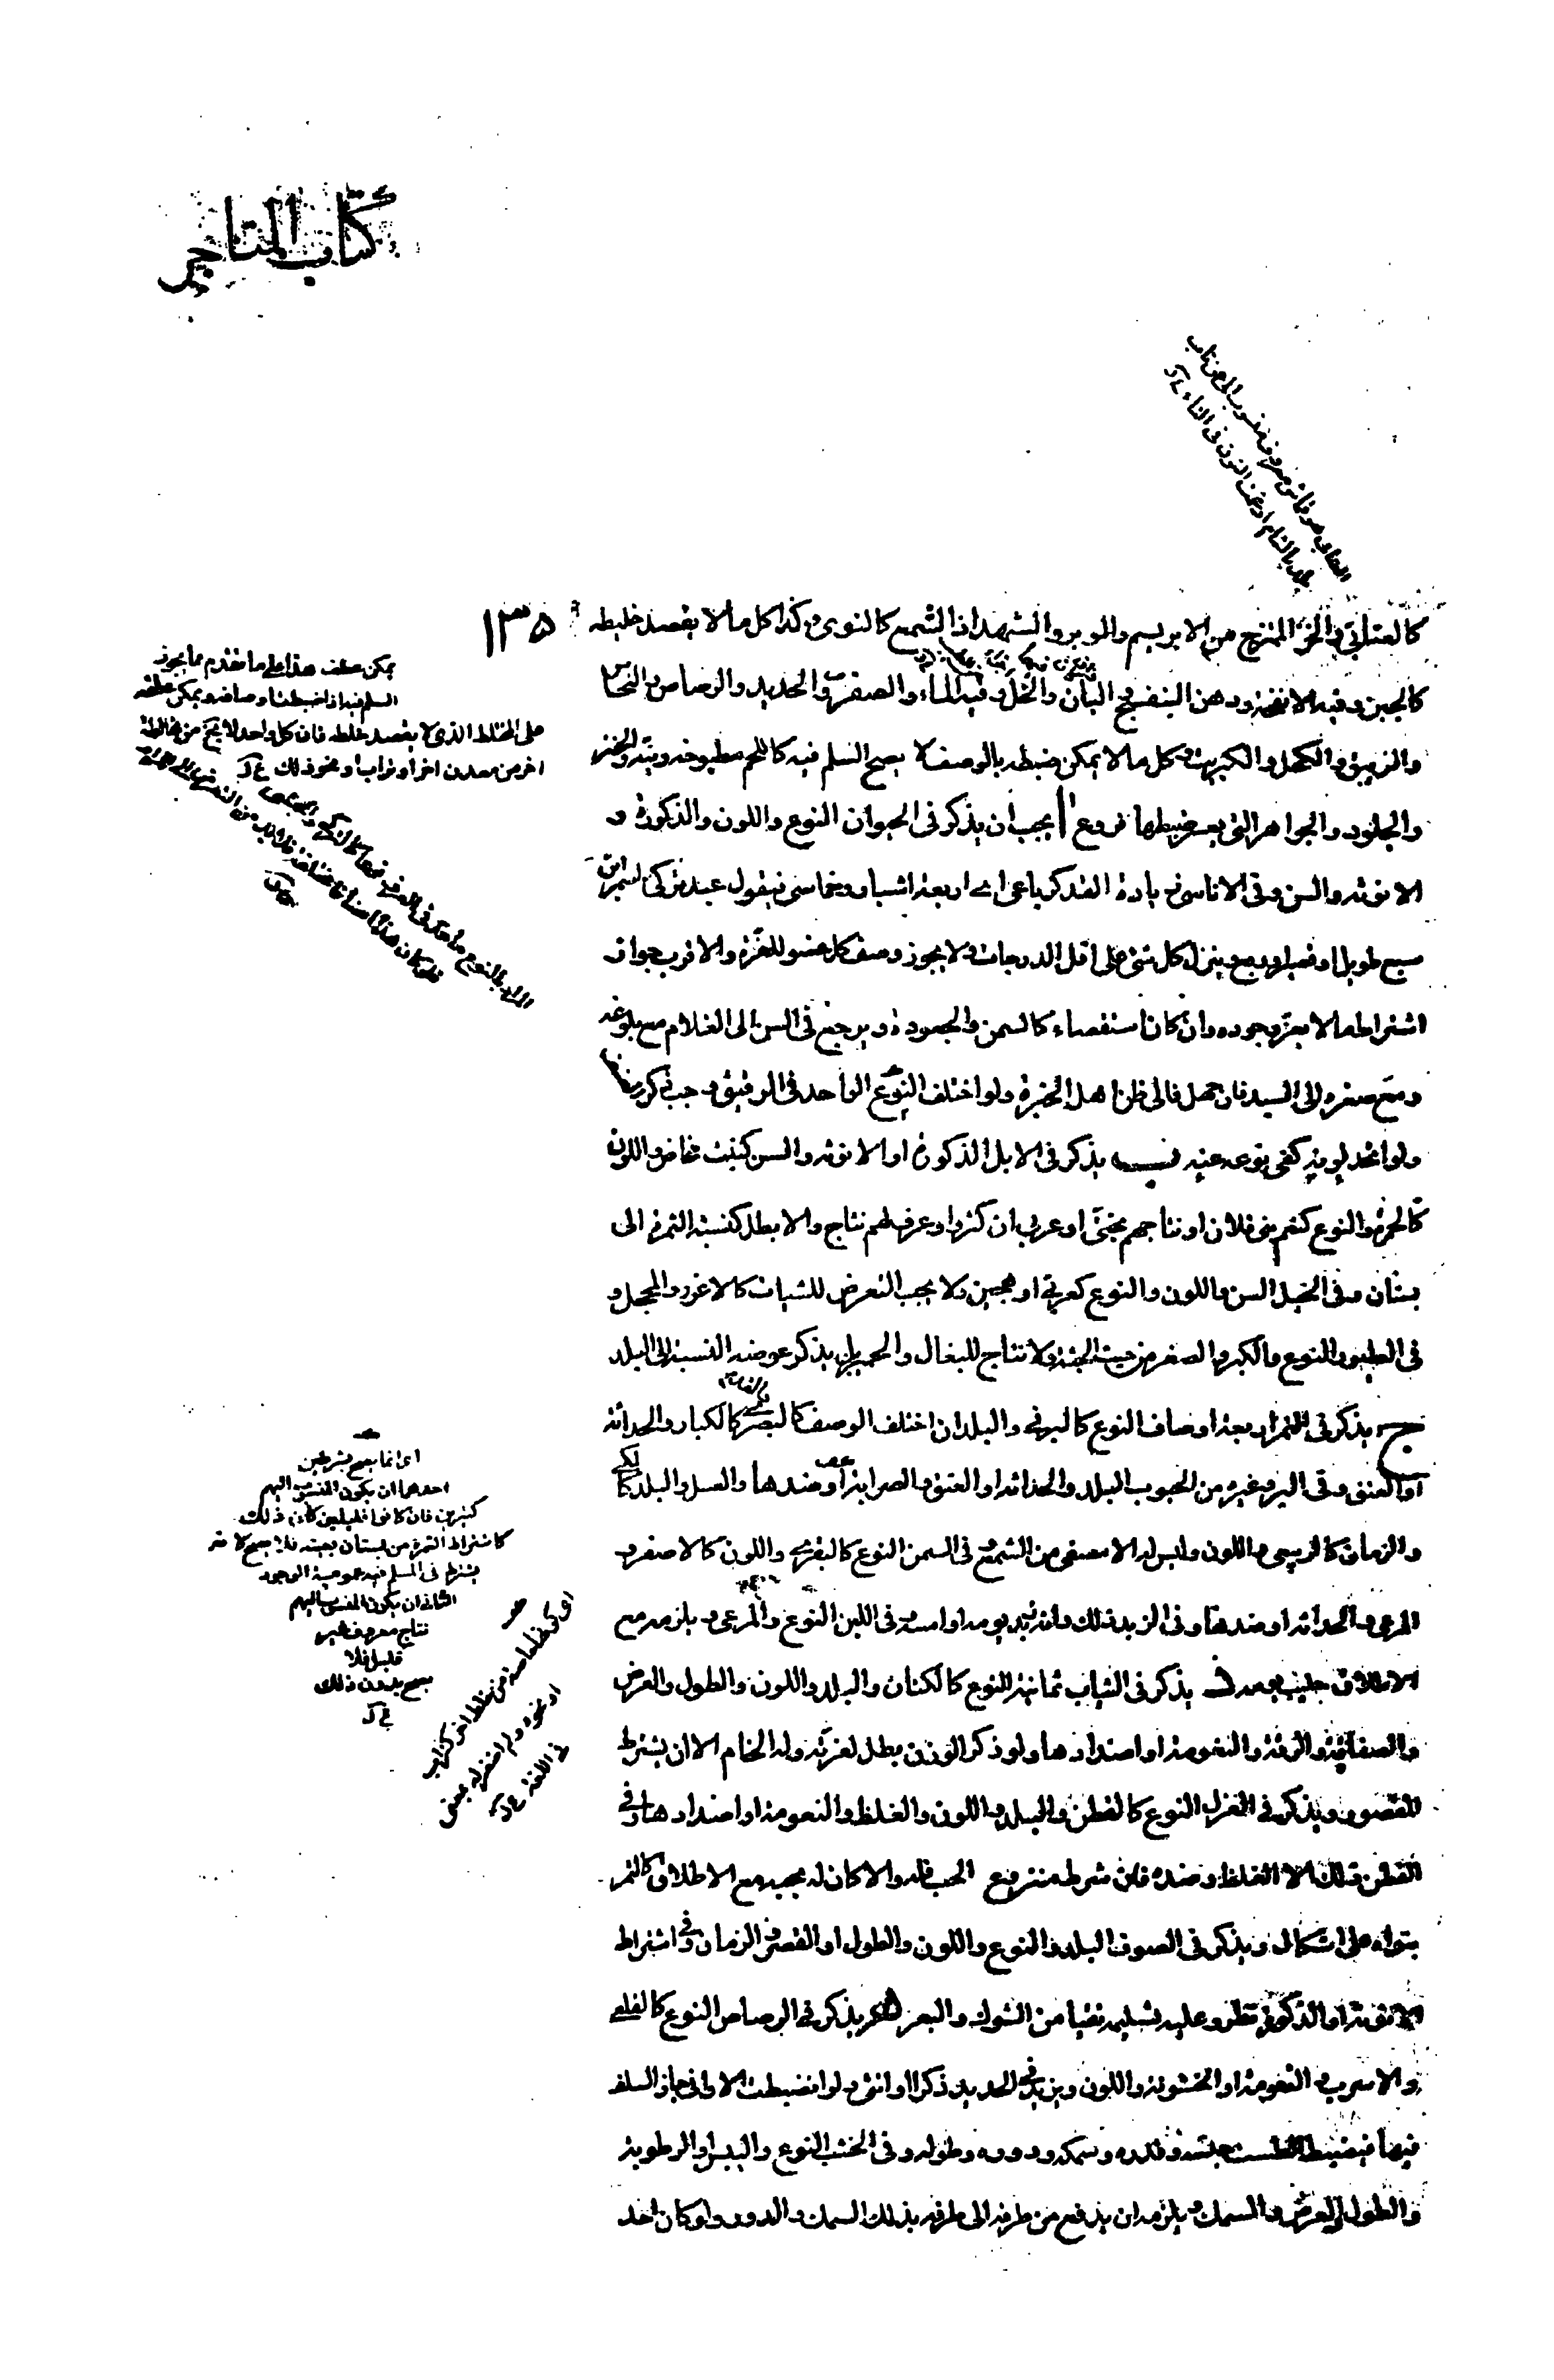 كتاب المتاجر
١٣٥
كالعتابي والخز الممتزج من الابريسم والوبر والشهد اذ الشمع كالنوى وكذا كل ما لا يقصد خليطه
كالجبن وفيه الانفحة ودهن البنفسج والبان والخل وفيه الماء والصفر والحديد والرصاص والنحاس
والزيبق والكحل والكبريت وكل ما لا يمكن ضبطه بالوصف لا يصح السلم فيه كاللحم مطبوخه ونيه والخبز
والجلود والجواهر التي يعسر ضبطها فروع ا يجب ان يذكر في الحيوان النوع واللون والذكورة و
الانوثة والسن وفي الاناسي زيادة القد كرباعي اي اربعة اشبار وخماسي فيقول عبد تركي اسمر ابن
سبع طويل او قصير او ربع وينزل كل شئ على اقل الدرجات ولا يجوز وصف كل عضو للعزة والاقرب جواز
اشتراط ما لا يعز وجوده وان كان استقصاء كالسمن والجعودة ويرجع في السن الى الغلام مع بلوغه
ومع صغره الى السيد فان جهل فالى ظن اهل الخبرة ولو اختلف النوع الواحد في الرقيق وجب ذكر
ولو اتحد لون كفى نوعه عنه ب يذكر في الابل الذكورة او الانوثة والسن كبنت مخاض واللون
كالحمرة والنوع كنعم بني فلان او نتاجهم بختي او عربي ان كثروا وعرف لهم نتاج والا بطل كنسبة الثمرة الى
بستان وفي الخيل السن واللون والنوع كعربي او هجين ولا يجب التعرض للشيات كالاغر والمحجل و
في الطيور النوع والكبر والصغر من حيث الجثة ولا نتاج للبغال والحمير بل يذكر عوضه النسبة الى البلد
ج يذكر في التمر اربعة اوصاف النوع كالبرني والبلد ان اختلف الوصف كالبصري والقدر كالكبار والحداثة
او العتق وفي البر وغيره من الحبوب البلد والحداثة او العتق والصرابة او ضدها والعسل البلد كالمكي
والزمان كالربيعي واللون وليس له الا مصفى من الشمع د في السمن النوع كالبقري واللون كالاصفر و
المرعى والحداثة او ضدها وفي الزبد ذلك وانه زبد يومه او امسه وفي اللبن النوع والمرعى ويلزمه مع
الاطلاق حليب يومه ه يذكر في الثياب ثمانية النوع كالكتان والبلد واللون والطول والعرض
والصفاقة والرقة والنعومة او اضدادها ولو ذكر الوزن بطل لعزته وله الخام الا ان يشترط
المقصور و يذكر في الغزل النوع كالقطن والبلد واللون والغلظ والنعومة او اضدادها وفي
القطن ذلك الا الغلظ وضده فان شرط منزوع الحب فله والا كان له بحبه مع الاطلاق كالتمر
بنواه على اشكال ويذكر في الصوف البلد والنوع واللون والطول او القصر والزمان وفي اشتراط
الانوثة او الذكورة نظر وعليه تسليمه نقيا من الشوك والبعر يذكر في الرصاص النوع كالقلعي
والاسرب والنعومة او الخشونة واللون ويزيد في الحديد ذكرا او انثى ولو انضبطت الاواني جاز السلف
فيها فيضبط الطست جنسه وقدره وسمكه ودوره وطوله وفي الخشب النوع واليبس او الرطوبة
والطول والعرض والسمك ويلزمه ان يدفع من طرفه الى طرفه بذلك السمك والدور ولو كان احد
يمكن عطف هذا على ما تقدم مما يجوز
السلم فيه اذا ضبطت اوصافه ويمكن عطفه
على المختلط الذي لا يقصد خلطه فان كل واحد لا يخ من مخالطة
اخر من معدن اخر او تراب او نحو ذلك ع ك
اي انما يصح بشرطين
احدهما ان يكون المنسوب اليهم
كثيرين فان كانوا قليلين كان ذلك
كاشتراط الثمرة من بستان بعينه فلا يصح
يشترط في المسلم فيه عمومية الوجود
الثاني ان يكون المنسوب اليهم
نتاج معروف
قليل فلا
يصح بدون ذلك
ع ك